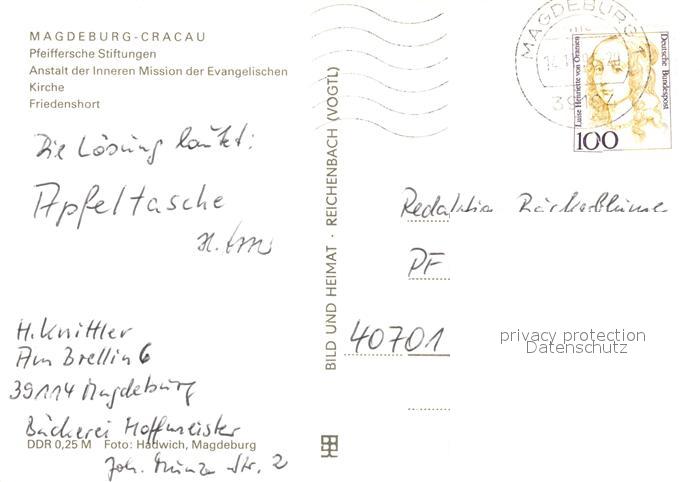 MAGDEBURG-CRACAU
Pfeiffersche Stiftungen
Anstalt der Inneren Mission der Evangelischen
Kirche
Friedenshort
Die Lösung lautet:
Apfeltasche
H. Knittler
Am Brellin 6
39114 Magdeburg
Bäckerei Hoffmeister
DDR 0,25 M Foto: Hadwich, Magdeburg
Joh. Münze Str. 2
BILD UND HEIMAT · REICHENBACH (VOGTL)
MAGDEBURG 1
39104
Luise Henriette von Oranien
Deutsche Bundespost
100
Redaktion Bäckerblume
PF
40701
privacy protection
Datenschutz